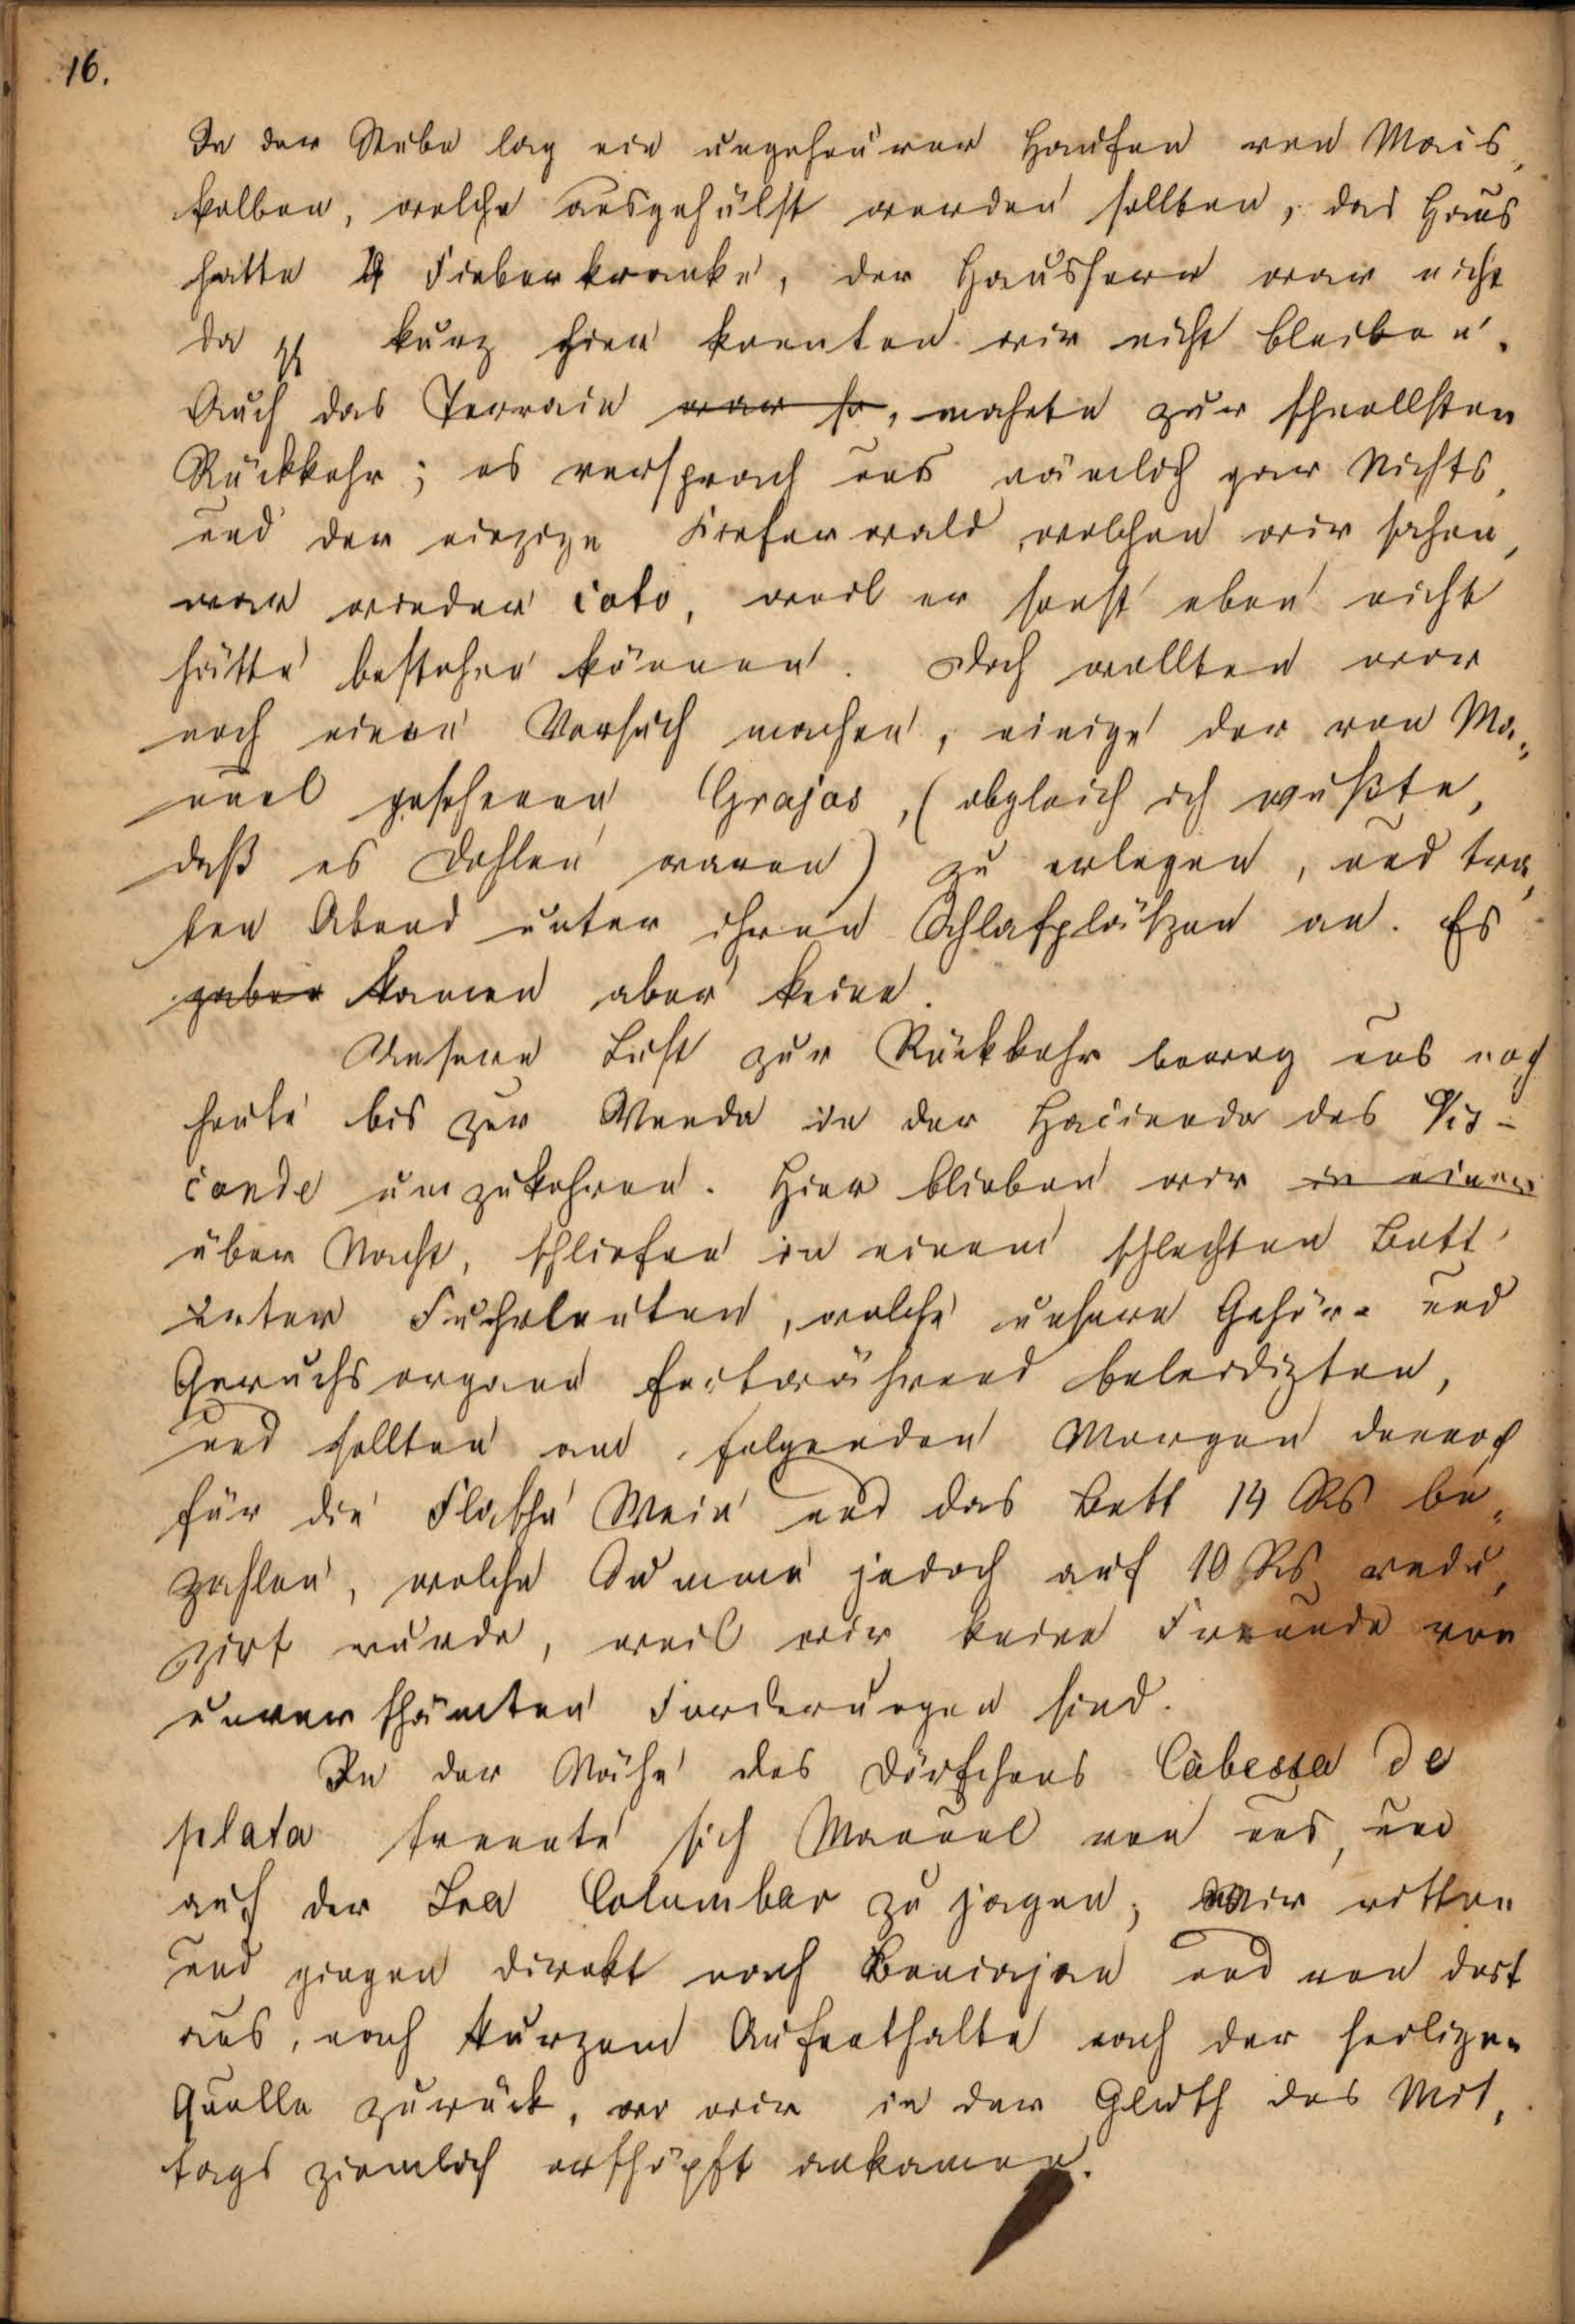 16.
In der Stube lag ein ungeheurer Haufen von Mais,
kolben, welche ausgehülst werden sollten, das Haus
hatte 4 Fieberkranke, der Hausherr war nicht
da, kurz hier konnten wir nicht bleiben.
Auch das Terrain war so, mahnte zur schnellsten
Rückkehr; es versprach uns nämlich gar Nichts,
und der einzige Kiefernwald, welchen wir sahen,
war wieder coto, weil er sonst eben nicht
hätte bestehen können. Doch wollten wir
noch einen Versuch machen, einige der von Ma,
nuel gesehenen Grajas, (obgleich ich wußte,
daß es Dohlen waren) zu erlegen, und tra,
ten Abend unter ihren Schlafplätzen an. Es
gaben kamen aber keine.
Unsere Lust zur Rückkehr bewog uns noch
heute bis zur Venda in der Hacienda des Vis-
conde umzukehren. Hier blieben wir in einem
über Nacht, schliefen in einem schlechten Bett
unter Fuhrleuten, welche unsere Gehör- und
Geruchsorgane fortwährend beleidigten,
und sollten am folgenden Morgen dennoch
für die Flasche Wein und das Bett 14 Rs be,
zahlen, welche Summe jedoch auf 10 Rs redu,
zirt wurde, weil wir keine Freunde von
unverschämten Forderungen sind.
In der Nähe des Dörfchens Cabessa de
plata trennte sich Manuel von uns, um
auf der Columbar zu jagen; Wir ritten
und gingen direkt nach Beniajan und von dort
aus, nach kurzem Aufenthalte nach der heiligen
Quelle zurück, wo wir in der Gluth des Mit,
tags ziemlich erschöpft ankamen.